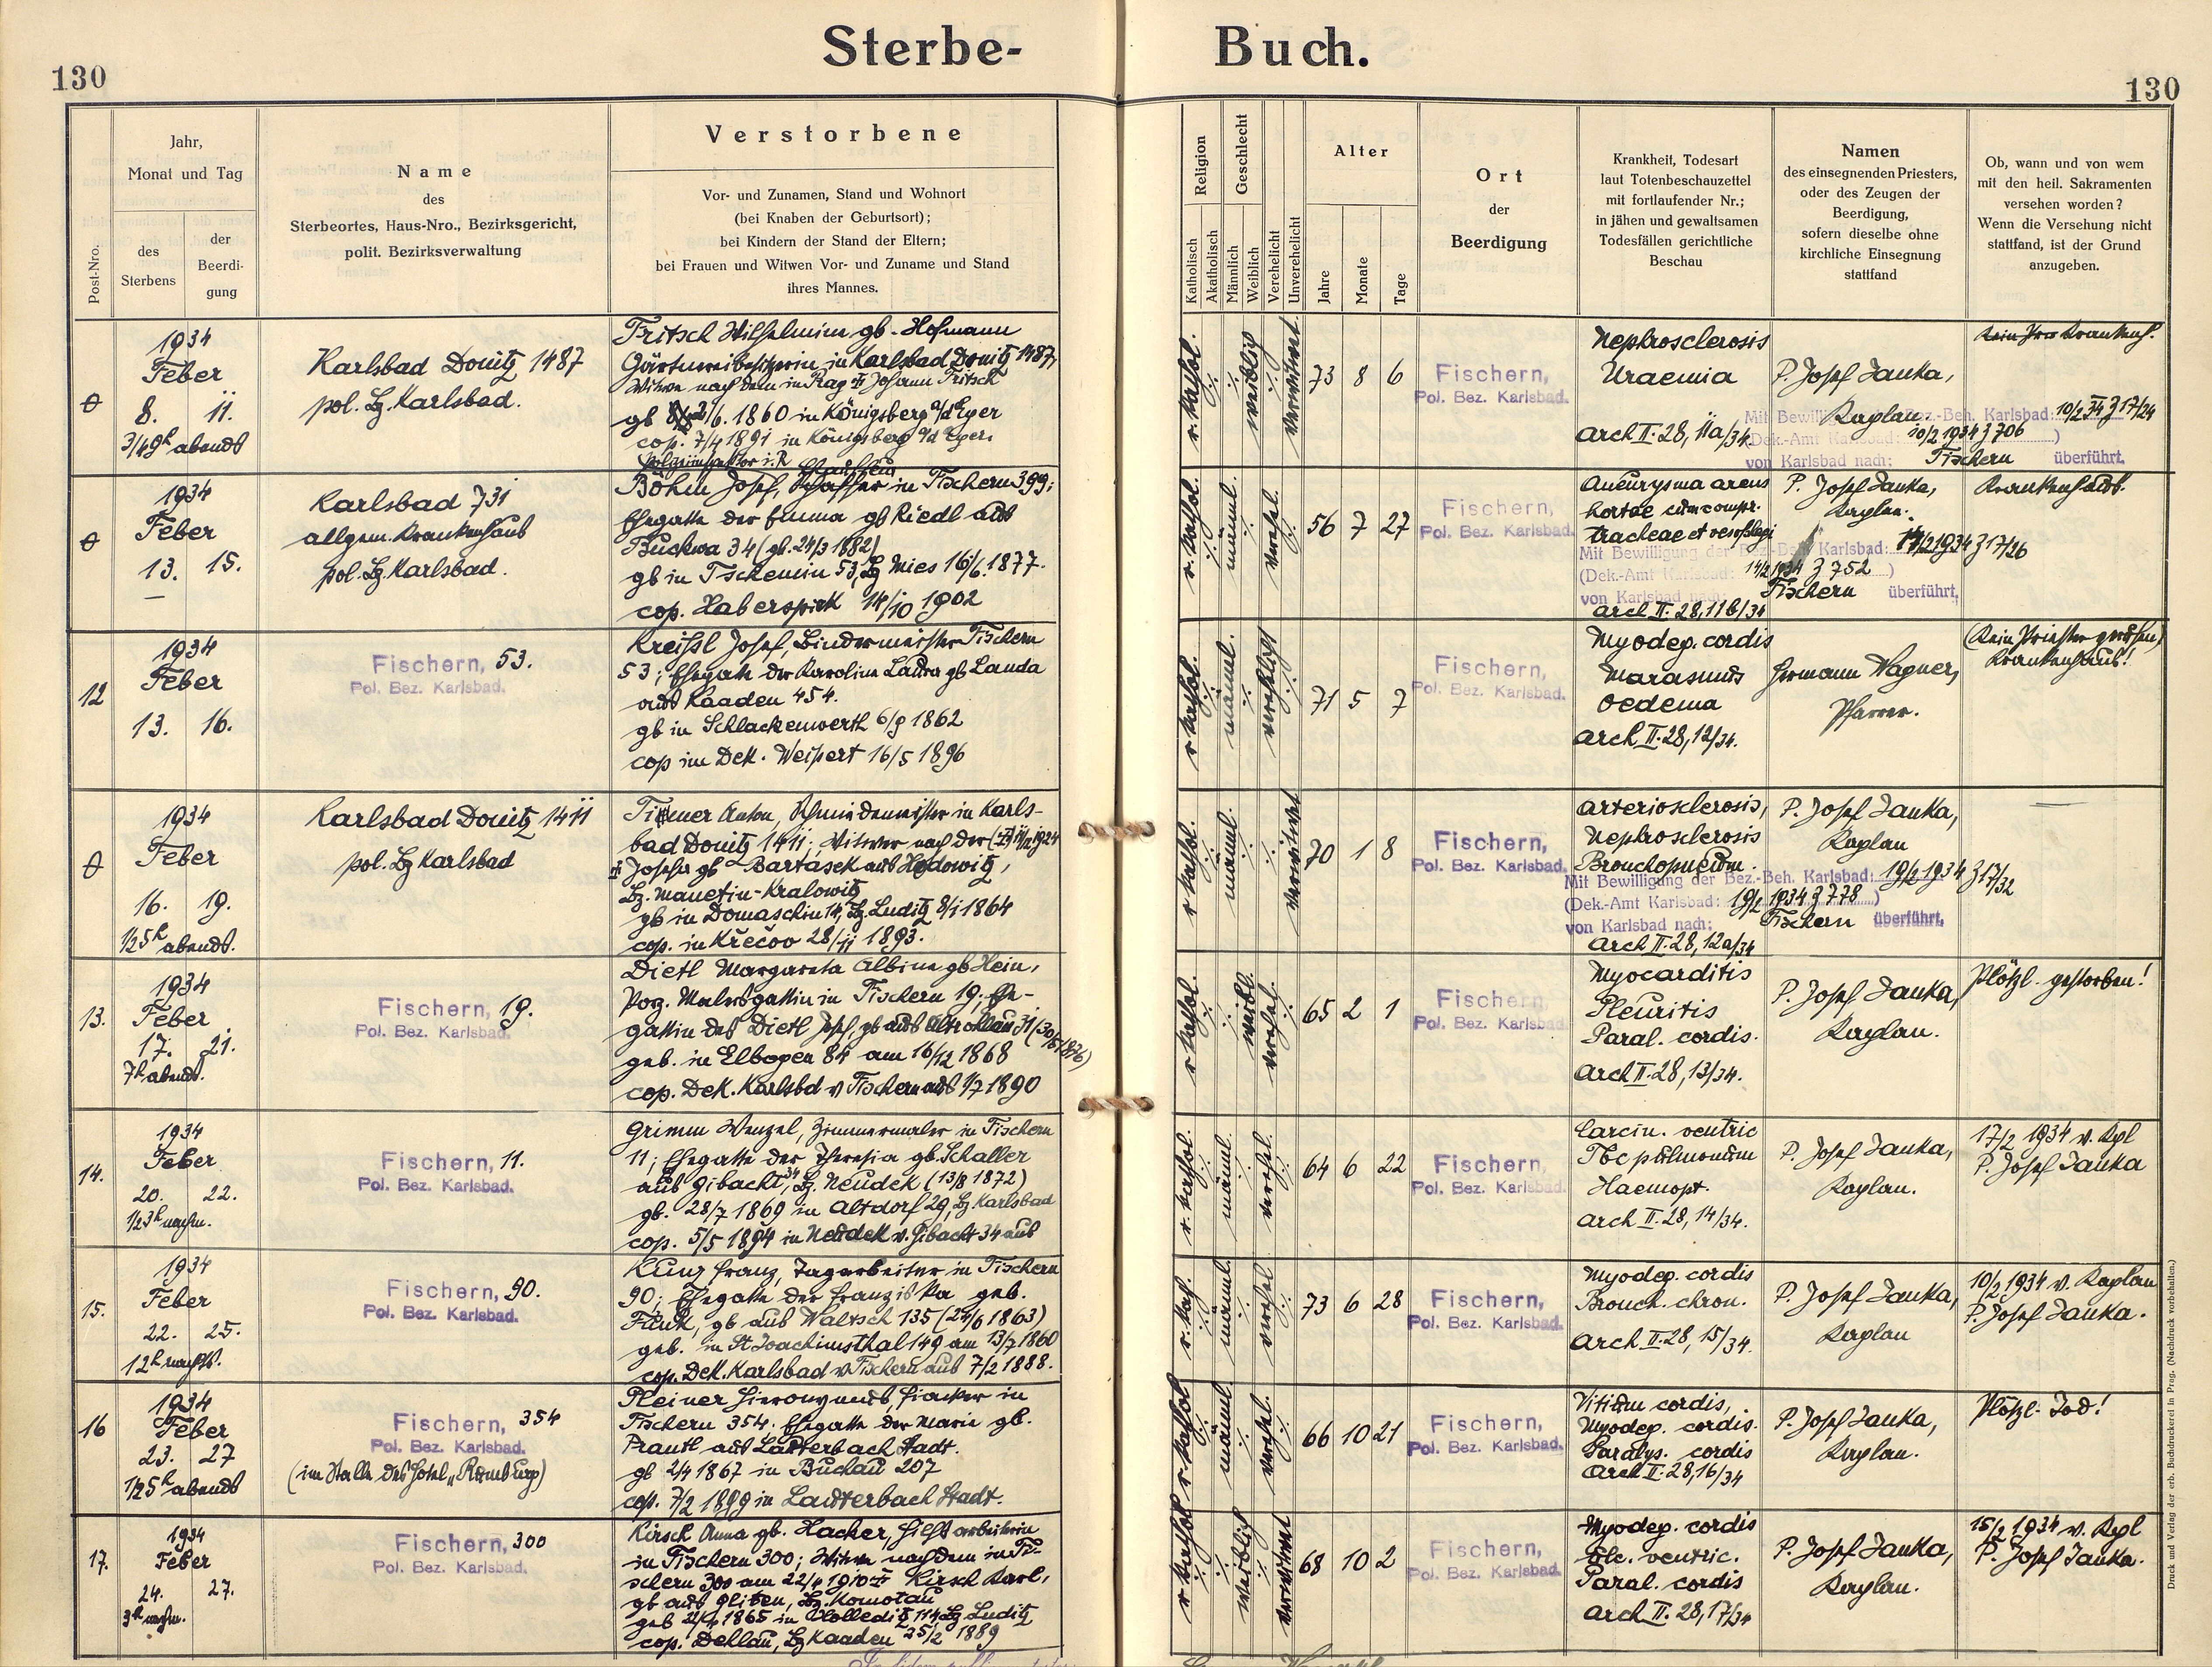 Sterbe-Buch.
130
130
Post-Nro.
Jahr,
Monat und Tag
des
Sterbens
der
Beerdi-
gung
Name
des
Sterbeortes, Haus-Nro., Bezirksgericht,
polit. Bezirksverwaltung
Verstorbene
Vor- und Zunamen, Stand und Wohnort
(bei Knaben der Geburtsort);
bei Kindern der Stand der Eltern;
bei Frauen und Witwen Vor- und Zuname und Stand
ihres Mannes.
Religion
Katholisch
Akatholisch
Geschlecht
Männlich
Weiblich
Verehelicht
Unverehelicht
Alter
Jahre
Monate
Tage
Ort
der
Beerdigung
Krankheit, Todesart
laut Totenbeschauzettel
mit fortlaufender Nr.;
in jähen und gewaltsamen
Todesfällen gerichtliche
Beschau
Namen
des einsegnenden Priesters,
oder des Zeugen der
Beerdigung,
sofern dieselbe ohne
kirchliche Einsegnung
stattfand
Ob, wann und von wem
mit den heil. Sakramenten
versehen worden?
Wenn die Versehung nicht
stattfand, ist der Grund
anzugeben.
1934
Feber
8. 11.
3/4 9h abends
Karlsbad Donitz 1487
pol. Bz. Karlsbad.
Fritsch Wilhelmine gb. Hofmann
Gärtnereibesitzerin in Karlsbad Donitz 1487,
Witwe nach dem in Prag Johann Fritsch
gb 2/6. 1860 in Königsberg a/d Eger
cop. 7/4 1891 in Königsberg a/d Eger.
r. kathol.
weiblich
verwitwet
73 8 6
Fischern,
Pol. Bez. Karlsbad.
Nephrosclerosis
Uraemia
Arch II. 28, 11a/34.
P. Josef Janka,
Kaplan.
Mit Bewilligung der Bez.-Beh. Karlsbad: 10/2 34 Z 17/24
(Dek.-Amt Karlsbad: 10/2 1934 Z 706)
von Karlsbad nach: Fischern überführt.
1934
Feber
13. 15.
Karlsbad 731
allgem. Krankenhaus
pol. Bz. Karlsbad.
Böhm Josef, in Fischern 399;
Ehegatte der Emma gb Riedl aus
Buckwa 34 (gb. 24/3 1882)
gb in Tschemin 53, Bz Mies 16/6. 1877.
cop. Haberspirk 14/10 1902
r. kathol.
männl.
verehel.
56 7 27
Fischern,
Pol. Bez. Karlsbad.
Aneurysma arcus
aortae cum compr.
tracheae et
P. Josef Janka,
Kaplan.
Krankenhaus.
Mit Bewilligung der Bez.-Beh. Karlsbad: 14/2 1934 Z 17/26
(Dek.-Amt Karlsbad: 14/2 1934 Z 752)
von Karlsbad nach: Fischern überführt.
Arch II. 28, 11b/34
12
1934
Feber
13. 16.
Fischern, 53.
Pol. Bez. Karlsbad.
Kreissl Josef, Bindermeister Fischern
53; Ehegatte der Karolina Laura gb Landa
aus Kaaden 454.
gb in Schlackenwerth 6/9 1862
cop im Dek. Weipert 16/5 1896
r. kathol.
männl.
vereheligt
71 5 7
Fischern,
Pol. Bez. Karlsbad.
Myodeg. cordis
Marasmus
Oedema
Arch II. 28, 12/34.
Hermann Wagner,
Pfarrer.
(Kein Priester gerufen)
Krankenhaus!
1934
Feber
16. 19.
1/2 5h abends.
Karlsbad Donitz 1411
pol. Bz Karlsbad
Anton, Schmiedemeister in Karls-
bad Donitz 1411; Witwer nach der
Josefa gb Bartasek aus Hodowitz,
Bz. Manetin-Kralowitz
gb in Domaschin 14, Bz. Luditz 8/1 1864
cop. in Křečov 28/11 1893.
r kathol.
männl.
verwitwet
70 1 8
Fischern,
Pol. Bez. Karlsbad.
Arteriosclerosis,
Nephrosclerosis
Bronchopneum.
P. Josef Janka,
Kaplan
Mit Bewilligung der Bez.-Beh. Karlsbad: 19/2 1934 Z 17/32
(Dek.-Amt Karlsbad: 19/2 1934 Z 778)
von Karlsbad nach: Fischern überführt.
Arch II. 28, 12a/34
13.
1934
Feber
17. 21.
7h abends.
Fischern, 19.
Pol. Bez. Karlsbad.
Dietl Margareta Albina gb Hein,
Porz. Malersgattin in Fischern 19; Ehe-
gattin des Dietl Josef, gb aus Altrohlau 31
geb. in Elbogen 84 am 16/12 1868
cop. Dek. Karlsbd v Fischern aus 1/7 1890
r kathol.
weibl.
verehel.
65 2 1
Fischern
Pol. Bez. Karlsbad
Myocarditis
Pleuritis
Paral. cordis.
Arch II. 28, 13/34.
P. Josef Janka,
Kaplan.
Plötzl. gestorben!
14.
1934
Feber
20. 22.
1/2 3h nachm.
Fischern, 11.
Pol. Bez. Karlsbad.
Grimm Wenzel, Zimmermaler in Fischern
11; Ehegatte der Theresia gb. Schaller
aus Gibacht, 34 Bz. Neudek (13/8 1872)
gb. 28/7 1869 in Altdorf 29, Bz Karlsbad
cop. 5/5 1894 in Neudek v. Gibacht 34 aus
r. kathol.
männl.
verehel.
64 6 22
Fischern,
Pol. Bez. Karlsbad.
Carcin. ventric
Tbc pulmonum
Haemopt.
Arch II. 28, 14/34.
P. Josef Janka,
Kaplan.
17/2 1934 v. Kpl
P. Josef Janka
15.
1934
Feber
22. 25.
12h nachts.
Fischern, 90.
Pol. Bez. Karlsbad.
Kunz Franz, Tagarbeiter in Fischern
90; Ehegatte der Franziska geb.
Funk, gb aus Waltsch 135 (24/6 1863)
geb. in St Joachimsthal 149 am 13/7 1860
cop. Dek. Karlsbad v Fischern aus 7/2 1888.
r. kath.
männl.
verehel
73 6 28
Fischern,
Pol. Bez. Karlsbad.
Myodeg. cordis
Bronch. chron.
Arch II. 28, 15/34.
P. Josef Janka,
Kaplan
10/2 1934 v. Kaplan
P. Josef Janka.
16
1934
Feber
23. 27
1/2 5h abends
Fischern, 354
Pol. Bez. Karlsbad.
(im Stalle des Hotel „Romburg)
Pleiner Hieronymus, Fiaker in
Fischern 354. Ehegatte der Marie gb.
Prautl aus Lauterbach Stadt.
gb 2/4 1867 in Buchau 207
cop. 7/2 1899 in Lauterbach Stadt.
r kathol
männl.
verehel.
66 10 21
Fischern,
Pol. Bez. Karlsbad.
Vitium cordis,
Myodeg. cordis.
Paralys. cordis
Arch II. 28, 16/34
P. Josef Janka,
Kaplan.
Plötzl. Tod!
17.
1934
Feber
24. 27.
3h nachm.
Fischern, 300
Pol. Bez. Karlsbad.
Kirsch Anna gb. Hacker, Hilfsarbeiterin
in Fischern 300; Witwe nach dem in Fi-
schern 300 am 22/4 1910 Kirsch Karl,
gb aus Glieden, Bz. Komotau
geb 1865 in 114, Bz Luditz
cop. Dehlau, Bz Kaaden 25/2 1889
r kathol
weiblich
verwitwet
68 10 2
Fischern,
Pol. Bez. Karlsbad.
Myodeg. cordis
Ulc. ventric.
Paral. cordis
Arch II. 28, 17/34
P. Josef Janka,
Kaplan.
15/2 1934 v. Kpl
P. Josef Janka.
Druck und Verlag der erb. Buchdruckerei in Prag. (Nachdruck vorbehalten.)